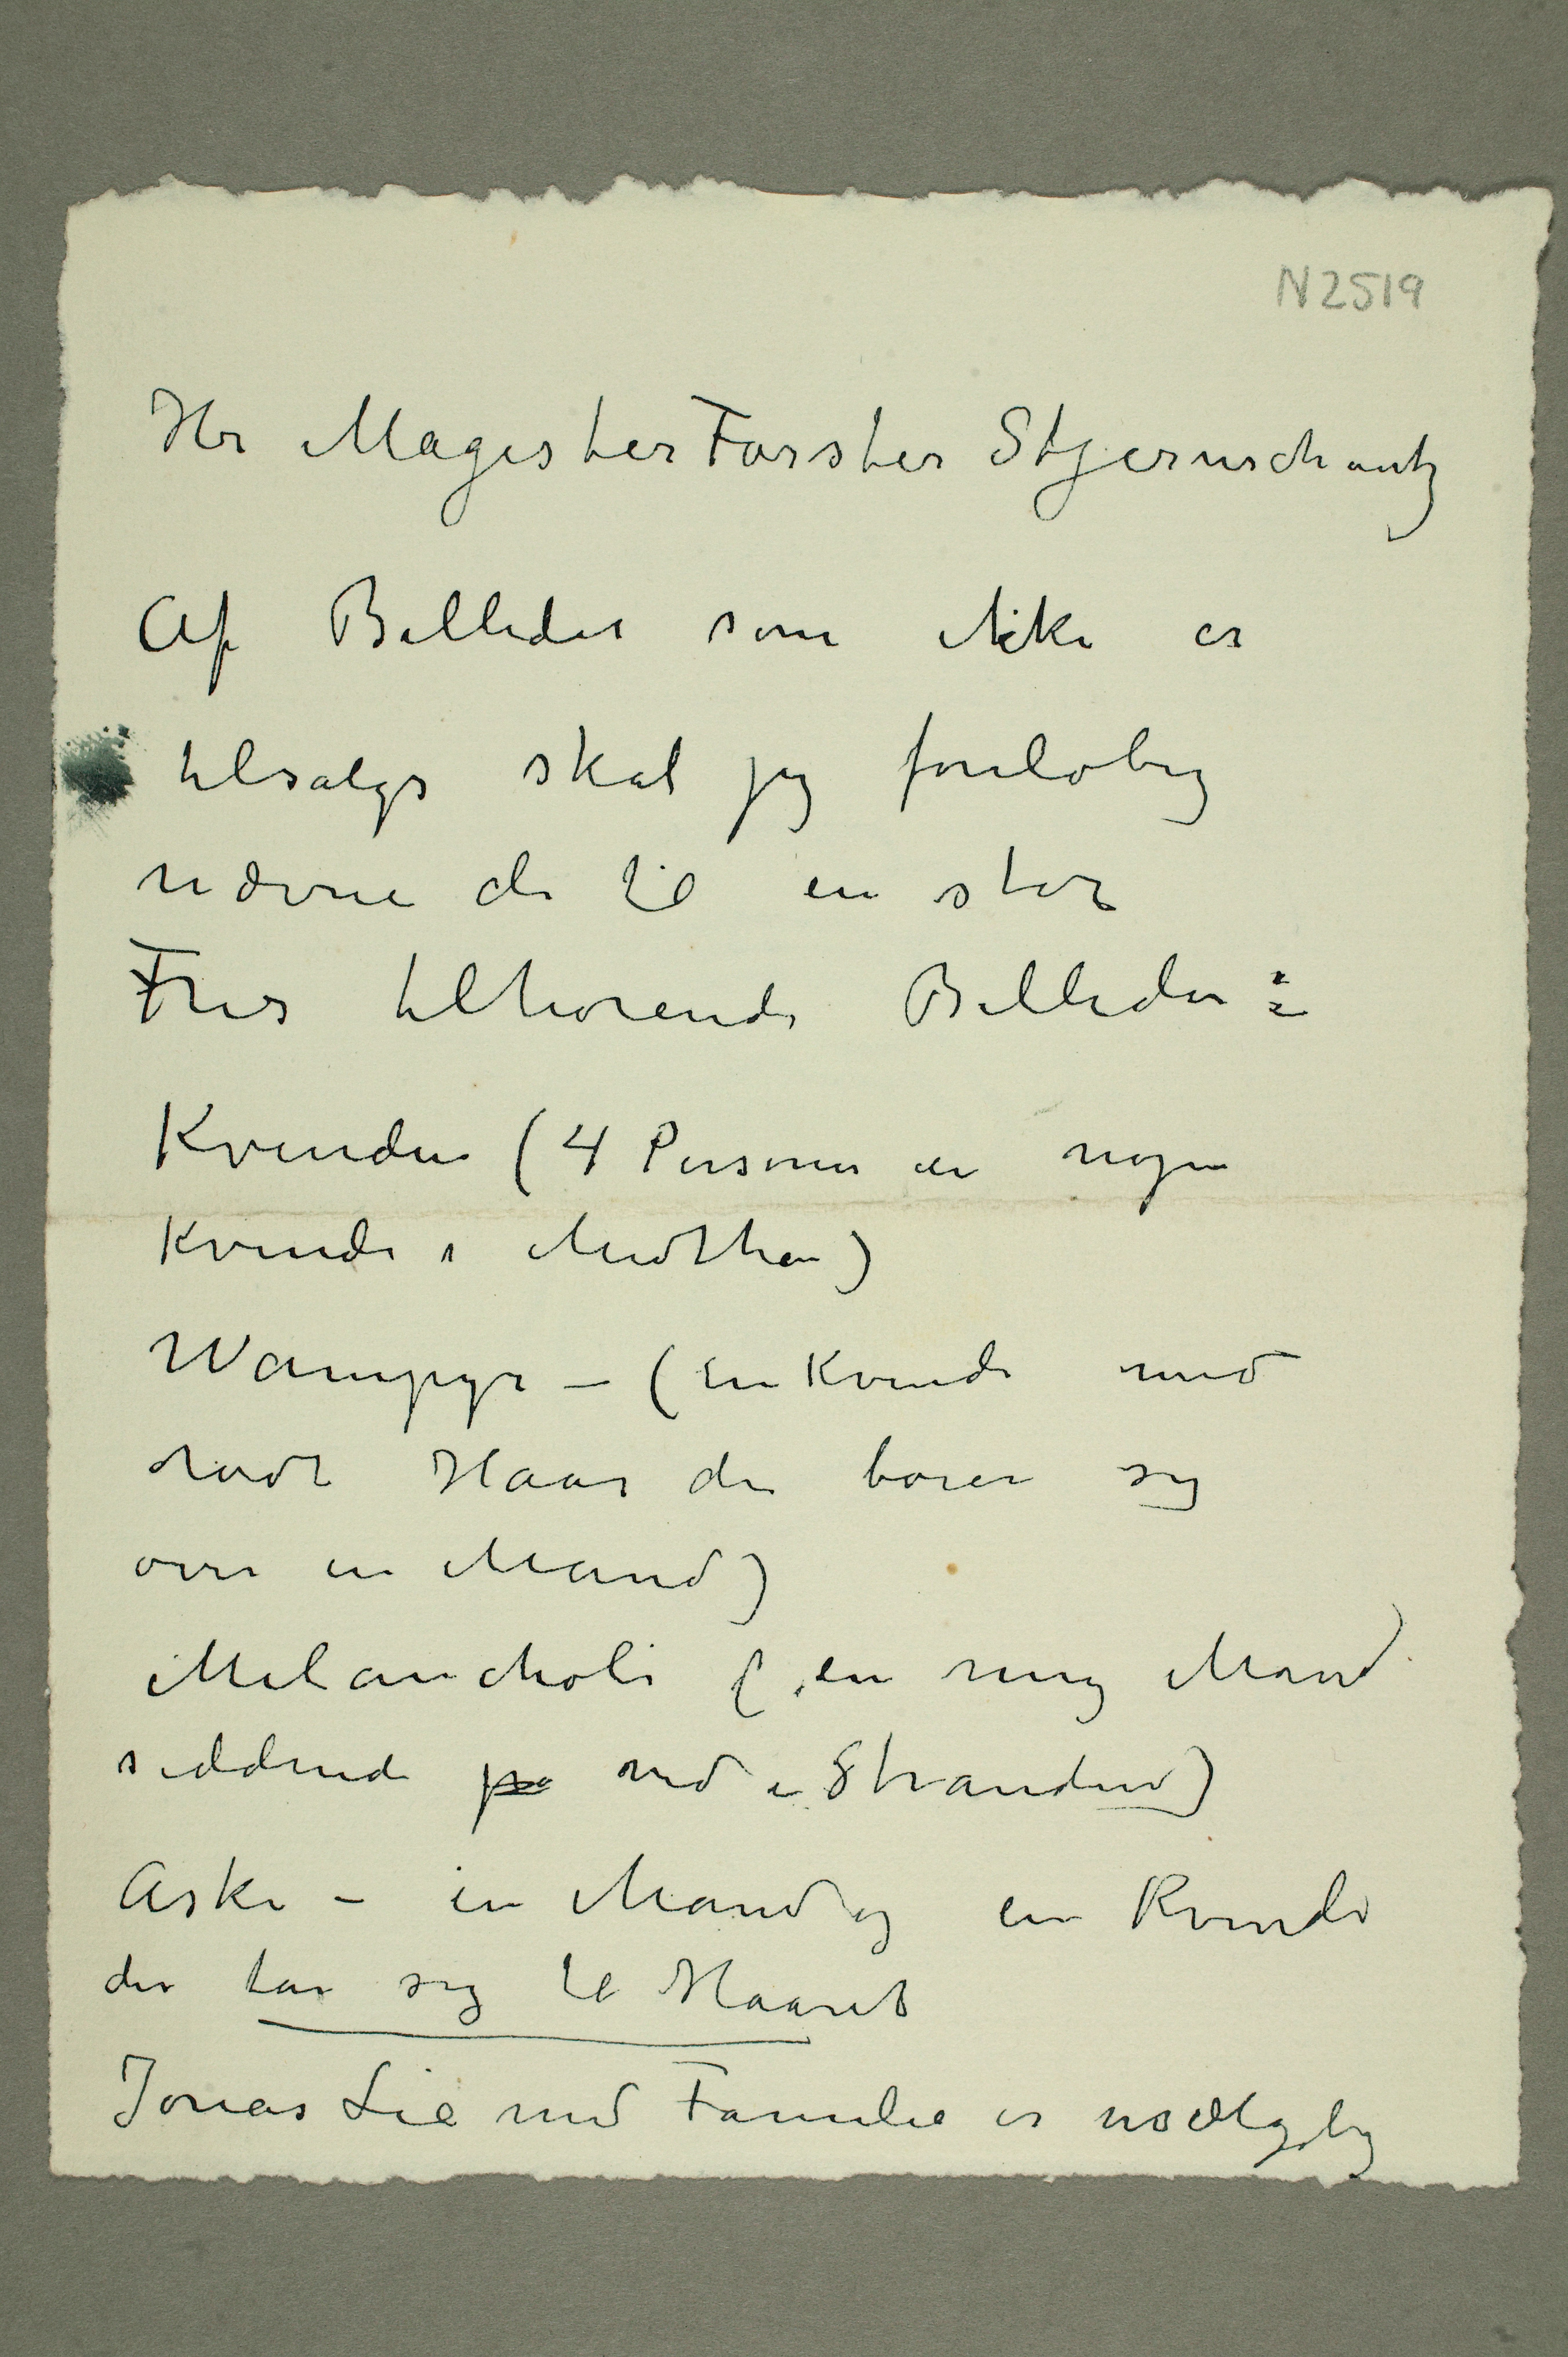 N 2519
Hr Magister Torster Stjernschantz
Af Billeder som ikke er
tilsalgs skal jeg foreløbig
nævne de til en stor
Fris tilhørende Billeder:
Kvinden (4 Personer en nøgen
Kvinde i Midthen)
Wampyr – (En Kvinde med
rødt Haar der bøier sig
over en Mand)
Melancholi (en ung Mand
siddende på ved en Stranden)
Aske – en Mand og en Kvinde
der tar sig til Haaret
Jonas Lie med Familie er usælgelig